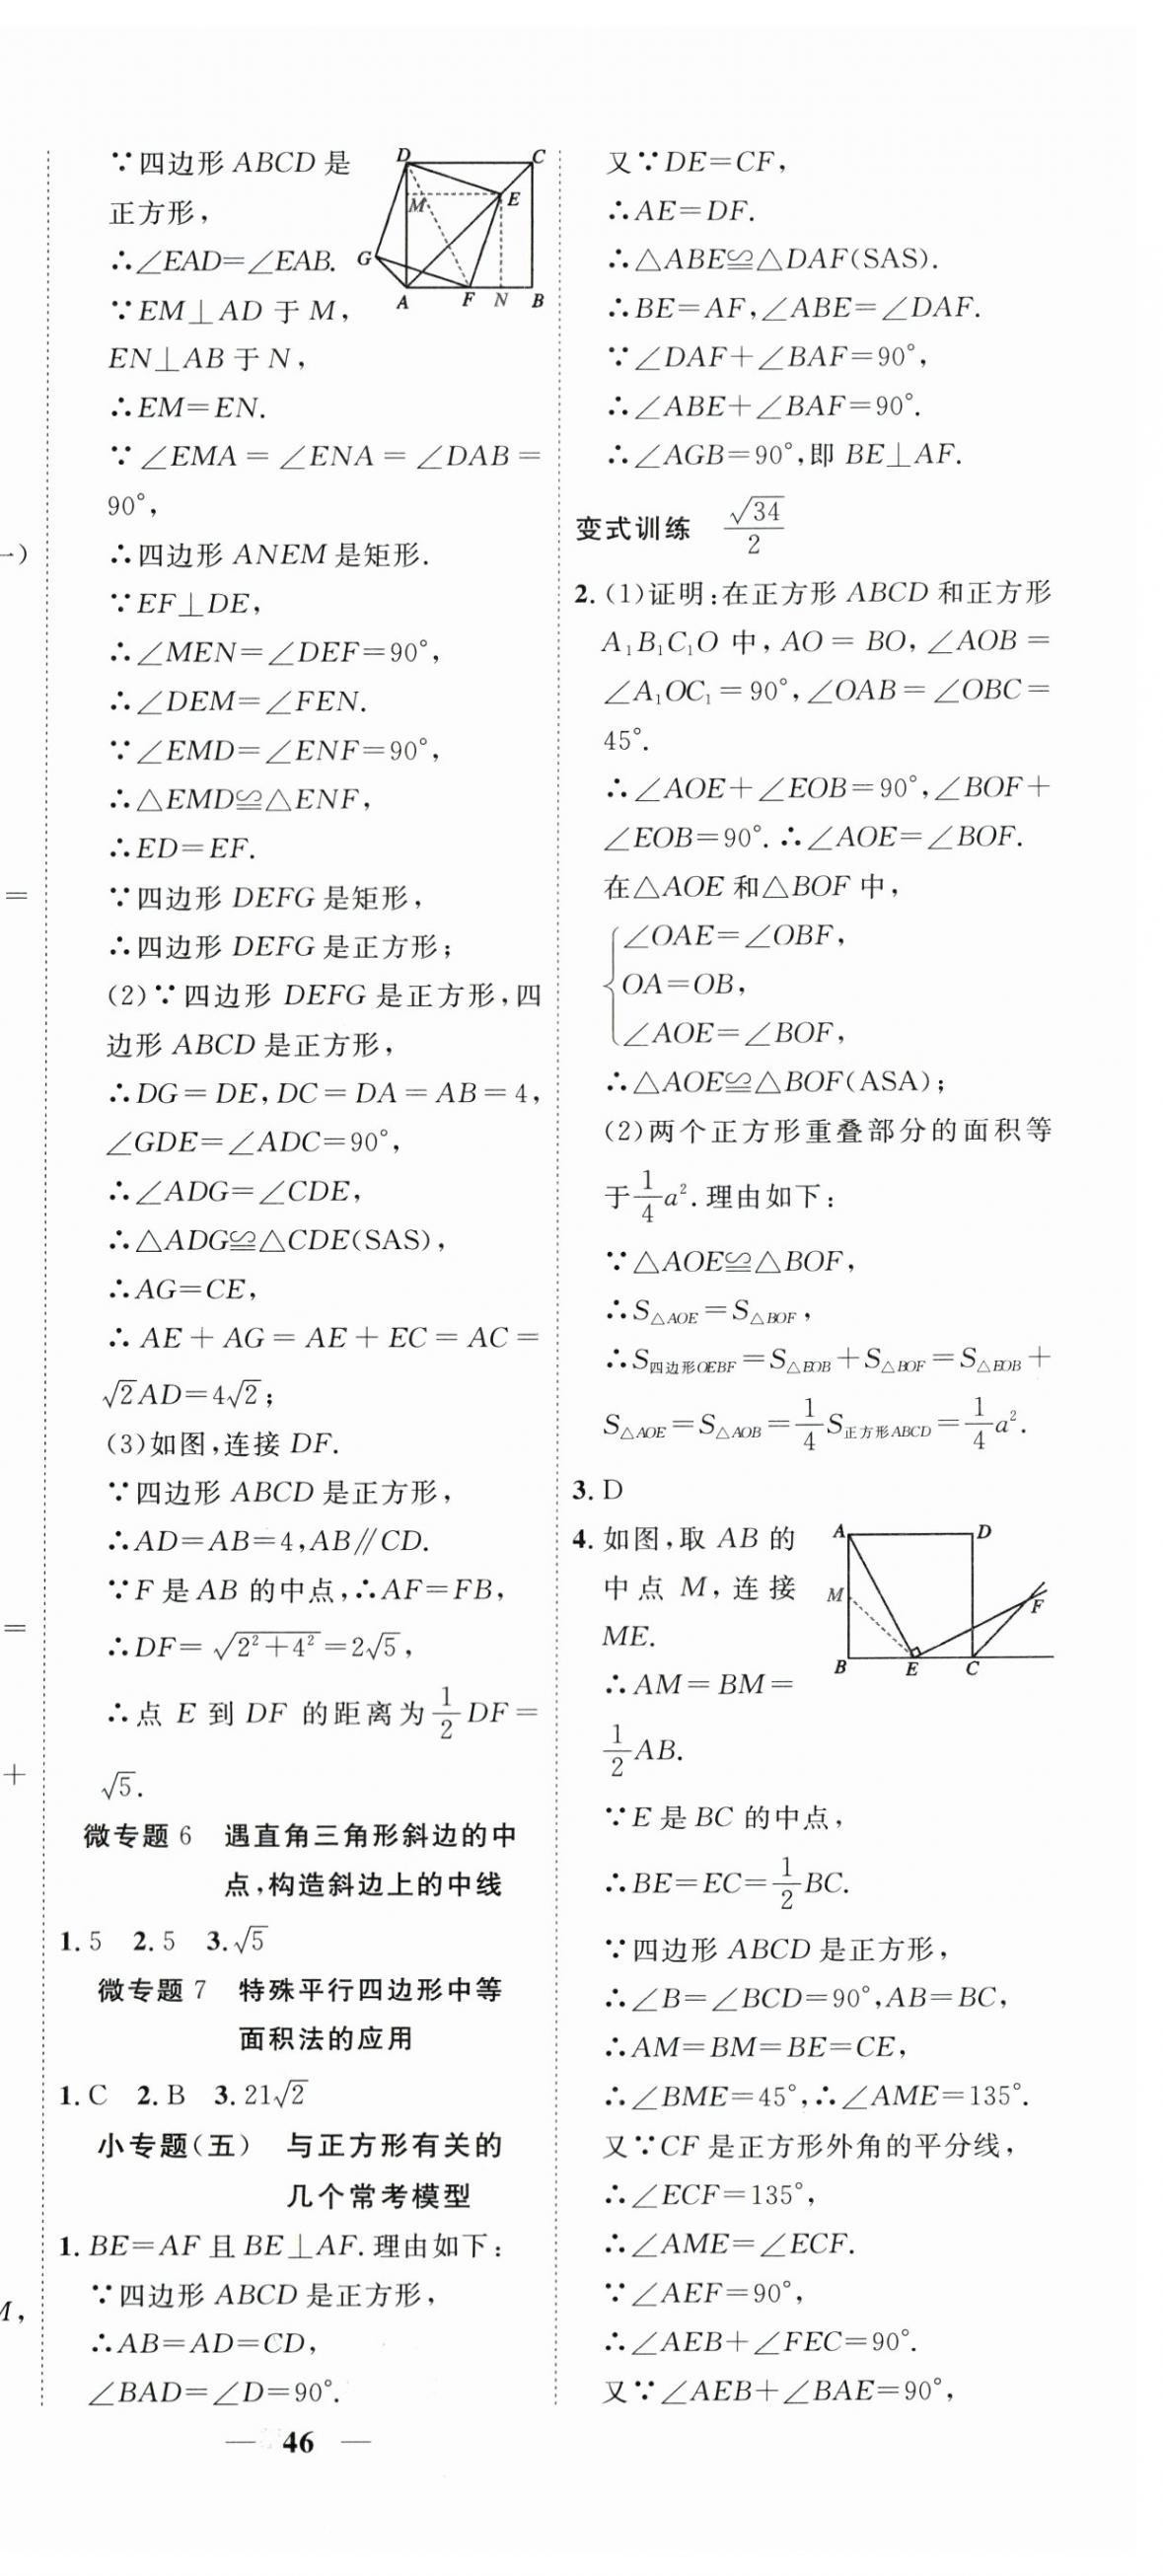 ∵四边形 ABCD 是
正方形，
∴∠EAD=∠EAB.
∵EM⊥AD 于 M，
EN⊥AB 于 N，
∴EM=EN.
∵∠EMA=∠ENA=∠DAB=
90°，
∴四边形 ANEM 是矩形.
∵EF⊥DE，
∴∠MEN=∠DEF=90°，
∴∠DEM=∠FEN.
∵∠EMD=∠ENF=90°，
∴△EMD≌△ENF，
∴ED=EF.
∵四边形 DEFG 是矩形，
∴四边形 DEFG 是正方形；
(2)∵四边形 DEFG 是正方形，四
边形 ABCD 是正方形，
∴DG=DE，DC=DA=AB=4，
∠GDE=∠ADC=90°，
∴∠ADG=∠CDE，
∴△ADG≌△CDE(SAS)，
∴AG=CE，
∴AE+AG=AE+EC=AC=
√2AD=4√2；
(3)如图，连接 DF.
∵四边形 ABCD 是正方形，
∴AD=AB=4，AB∥CD.
∵F 是 AB 的中点，∴AF=FB，
∴DF=√(2²+4²)=2√5，
∴点 E 到 DF 的距离为 1/2 DF=
√5.
微专题 6 遇直角三角形斜边的中
点，构造斜边上的中线
1. 5 2. 5 3. √5
微专题 7 特殊平行四边形中等
面积法的应用
1. C 2. B 3. 21√2
小专题(五) 与正方形有关的
几个常考模型
1. BE=AF 且 BE⊥AF. 理由如下：
∵四边形 ABCD 是正方形，
∴AB=AD=CD，
∠BAD=∠D=90°.
D C
M E
G
A F N B
又∵DE=CF，
∴AE=DF.
∴△ABE≌△DAF(SAS).
∴BE=AF，∠ABE=∠DAF.
∵∠DAF+∠BAF=90°，
∴∠ABE+∠BAF=90°.
∴∠AGB=90°，即 BE⊥AF.
变式训练 √34/2
2. (1)证明：在正方形 ABCD 和正方形
A₁B₁C₁O 中，AO=BO，∠AOB=
∠A₁OC₁=90°，∠OAB=∠OBC=
45°.
∴∠AOE+∠EOB=90°，∠BOF+
∠EOB=90°. ∴∠AOE=∠BOF.
在△AOE 和△BOF 中，
{∠OAE=∠OBF，
OA=OB，
∠AOE=∠BOF，
∴△AOE≌△BOF(ASA)；
(2)两个正方形重叠部分的面积等
于 1/4 a². 理由如下：
∵△AOE≌△BOF，
∴S△AOE=S△BOF，
∴S四边形OEBF=S△EOB+S△BOF=S△EOB+
S△AOE=S△AOB=1/4 S正方形ABCD=1/4 a².
3. D
4. 如图，取 AB 的
中点 M，连接
ME.
∴AM=BM=
1/2 AB.
A D
M F
B E C
∵E 是 BC 的中点，
∴BE=EC=1/2 BC.
∵四边形 ABCD 是正方形，
∴∠B=∠BCD=90°，AB=BC，
∴AM=BM=BE=CE，
∴∠BME=45°，∴∠AME=135°.
又∵CF 是正方形外角的平分线，
∴∠ECF=135°，
∴∠AME=∠ECF.
∵∠AEF=90°，
∴∠AEB+∠FEC=90°.
又∵∠AEB+∠BAE=90°，
— 46 —
一)
=
=
+
M，